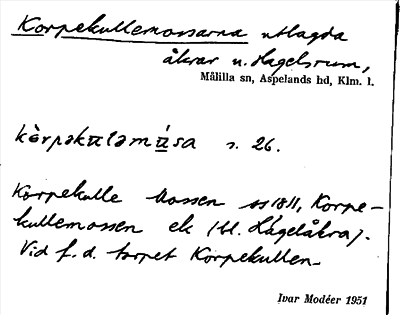 Korpekullemossarna utlagda
åkrar u. Hagelsrum,
Målilla sn, Aspelands hd, Klm. l.
kòrpəkᴜləmᴜ́sa s. 26.
Korpekulle Mossen ss 1811, Korpe-
kullemossen ek (bl. Hagelåkra).
Vid f. d. torpet Korpekullen.
Ivar Modéer 1951